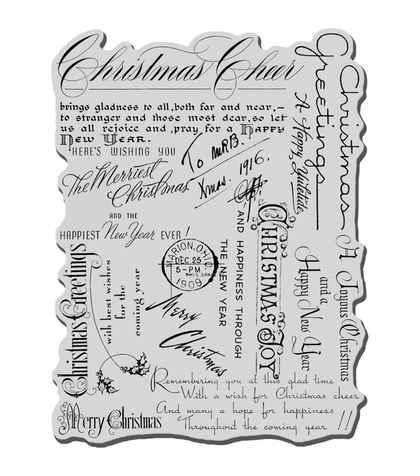 Christmas Cheer
brings gladness to all, both far and near,—
to stranger and those most dear, so let
us all rejoice and, pray for a Happy
New Year.
HERE'S WISHING YOU
The Merriest
Christmas
AND THE
HAPPIEST New Year EVER!
To MRB.
Xmas. 1916.
Christmas
Greetings
A Happy Yuletide
CHRISTMAS JOY
AND HAPPINESS THROUGH
THE NEW YEAR
MARION, OHIO
DEC 25
5-PM
1909
A Joyous Christmas
and a
Happy New Year
Christmas Greetings
with best wishes
for the
coming year
Merry
Christmas
Remembering you at this glad time
With a wish for Christmas cheer
And many a hope for happiness
Throughout the coming year !!
Merry Christmas